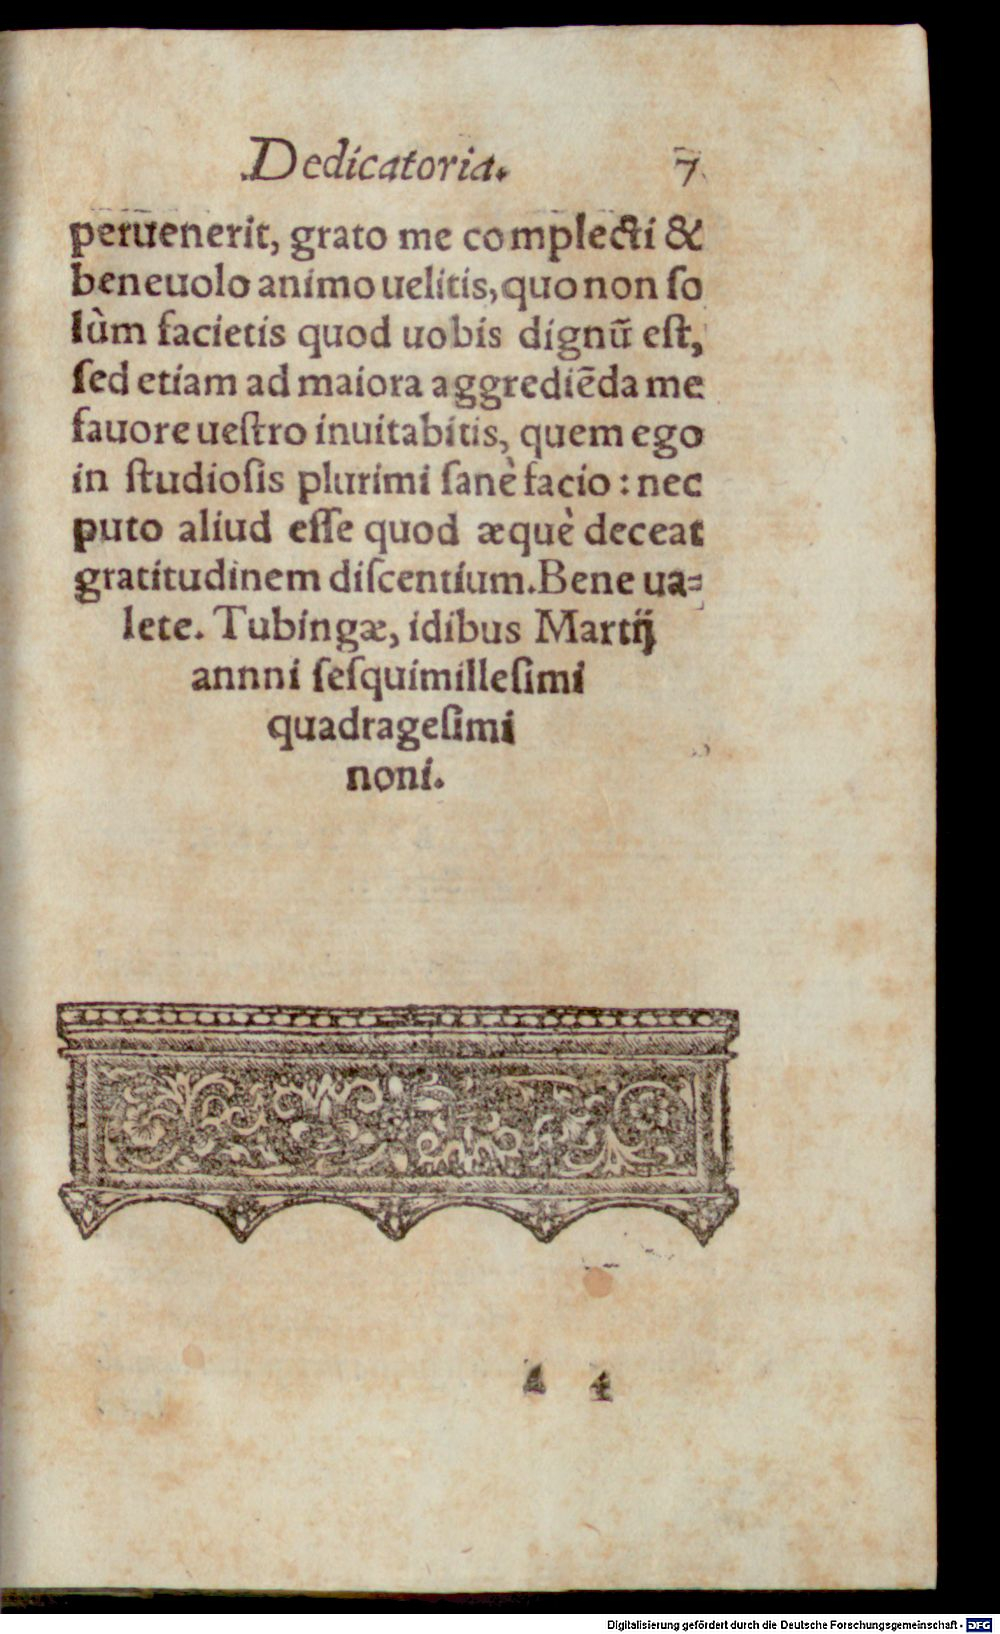 Dedicatoria. 7
peruenerit, grato me complecti &
beneuolo animo uelitis, quo non ſo
lùm facietis quod uobis dignū eſt,
ſed etiam ad maiora aggrediēda me
fauore ueſtro inuitabitis, quem ego
in ſtudioſis plurimi ſanè facio: nec
puto aliud eſſe quod æquè deceat
gratitudinem diſcentium. Bene ua⸗
lete. Tubingæ, idibus Martij
annni ſeſquimilleſimi
quadrageſimi
noni.
A 4
Digitalisierung gefördert durch die Deutsche Forschungsgemeinschaft - DFG